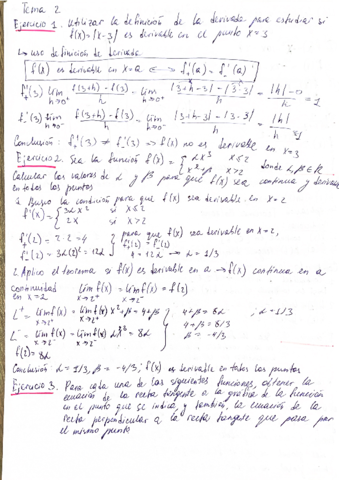 Tema 2
Ejercicio 1. Utilizar la definición de la derivada para estudiar si
f(x)=|x-3| es derivable en el punto x=3
uso definición de derivada
f(x) es derivable en x=a <--> f'₊(a) = f'₋(a)
f'₊(3) lím h→0⁺ (f(3+h)-f(3))/h = lím h→0⁺ (|3+h-3|-|3-3|)/h = (|h|-0)/h = 1
f'₋(3) lím h→0⁻ (f(3+h)-f(3))/h = lím h→0⁻ (|3+h-3|-|3-3|)/h = |h|/h
Conclusión: f'₊(3) ≠ f'₋(3) ⇒ f(x) no es derivable en x=3
Ejercicio 2. Sea la función f(x) = { αx³ x≤2
x²+β x>2 donde α, β ∈ ℝ
Calcular los valores de α y β para que f(x) sea continua y derivable
en todos los puntos
1. Busco la condición para que f(x) sea derivable en x=2
f'(x) = { 3αx² si x≤2
2x si x>2
f'₊(2) = 2·2=4 } para que f(x) sea derivable en x=2,
f'₋(2) = 3α(2)² = 12α f'₊(2)=f'₋(2)
4=12α → α=1/3
2. Aplico el teorema si f(x) es derivable en a ⇒ f(x) continua en a
continuidad lím f(x) = lím f(x) = f(2)
en x=2 x→2⁺ x→2⁻
L⁺ = lím f(x) = lím f(x) x²+β = 4+β } 4+β = 8α ; α=1/3
x→2⁺ x→2⁺ 4+β = 8/3
L⁻ = lím f(x) = lím f(x) αx³ = 8α β = -4/3
x→2⁻ x→2⁻
f(2) = 8α
Conclusión: α=1/3, β=-4/3; f(x) es derivable en todos los puntos
Ejercicio 3. Para cada una de las siguientes funciones, obtener la
ecuación de la recta tangente a la gráfica de la función
en el punto que se indica y también, la ecuación de la
recta perpendicular a la recta tangente que pasa por
el mismo punto